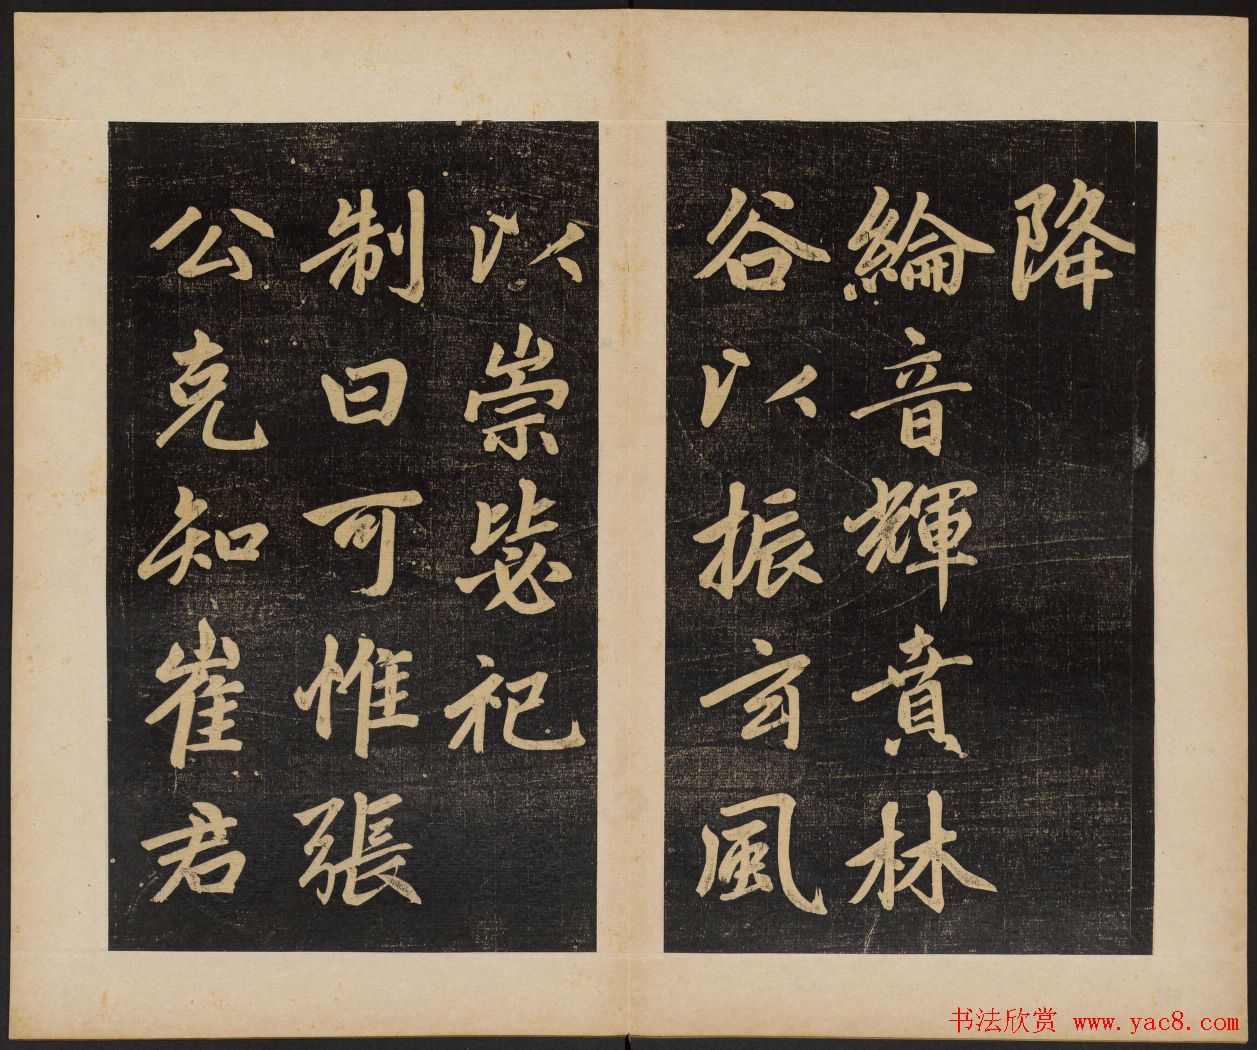 降
綸音輝賁林
谷以振玄風
以崇毖祀
制曰可惟張
公克知崔君
书法欣赏 www.yac8.com